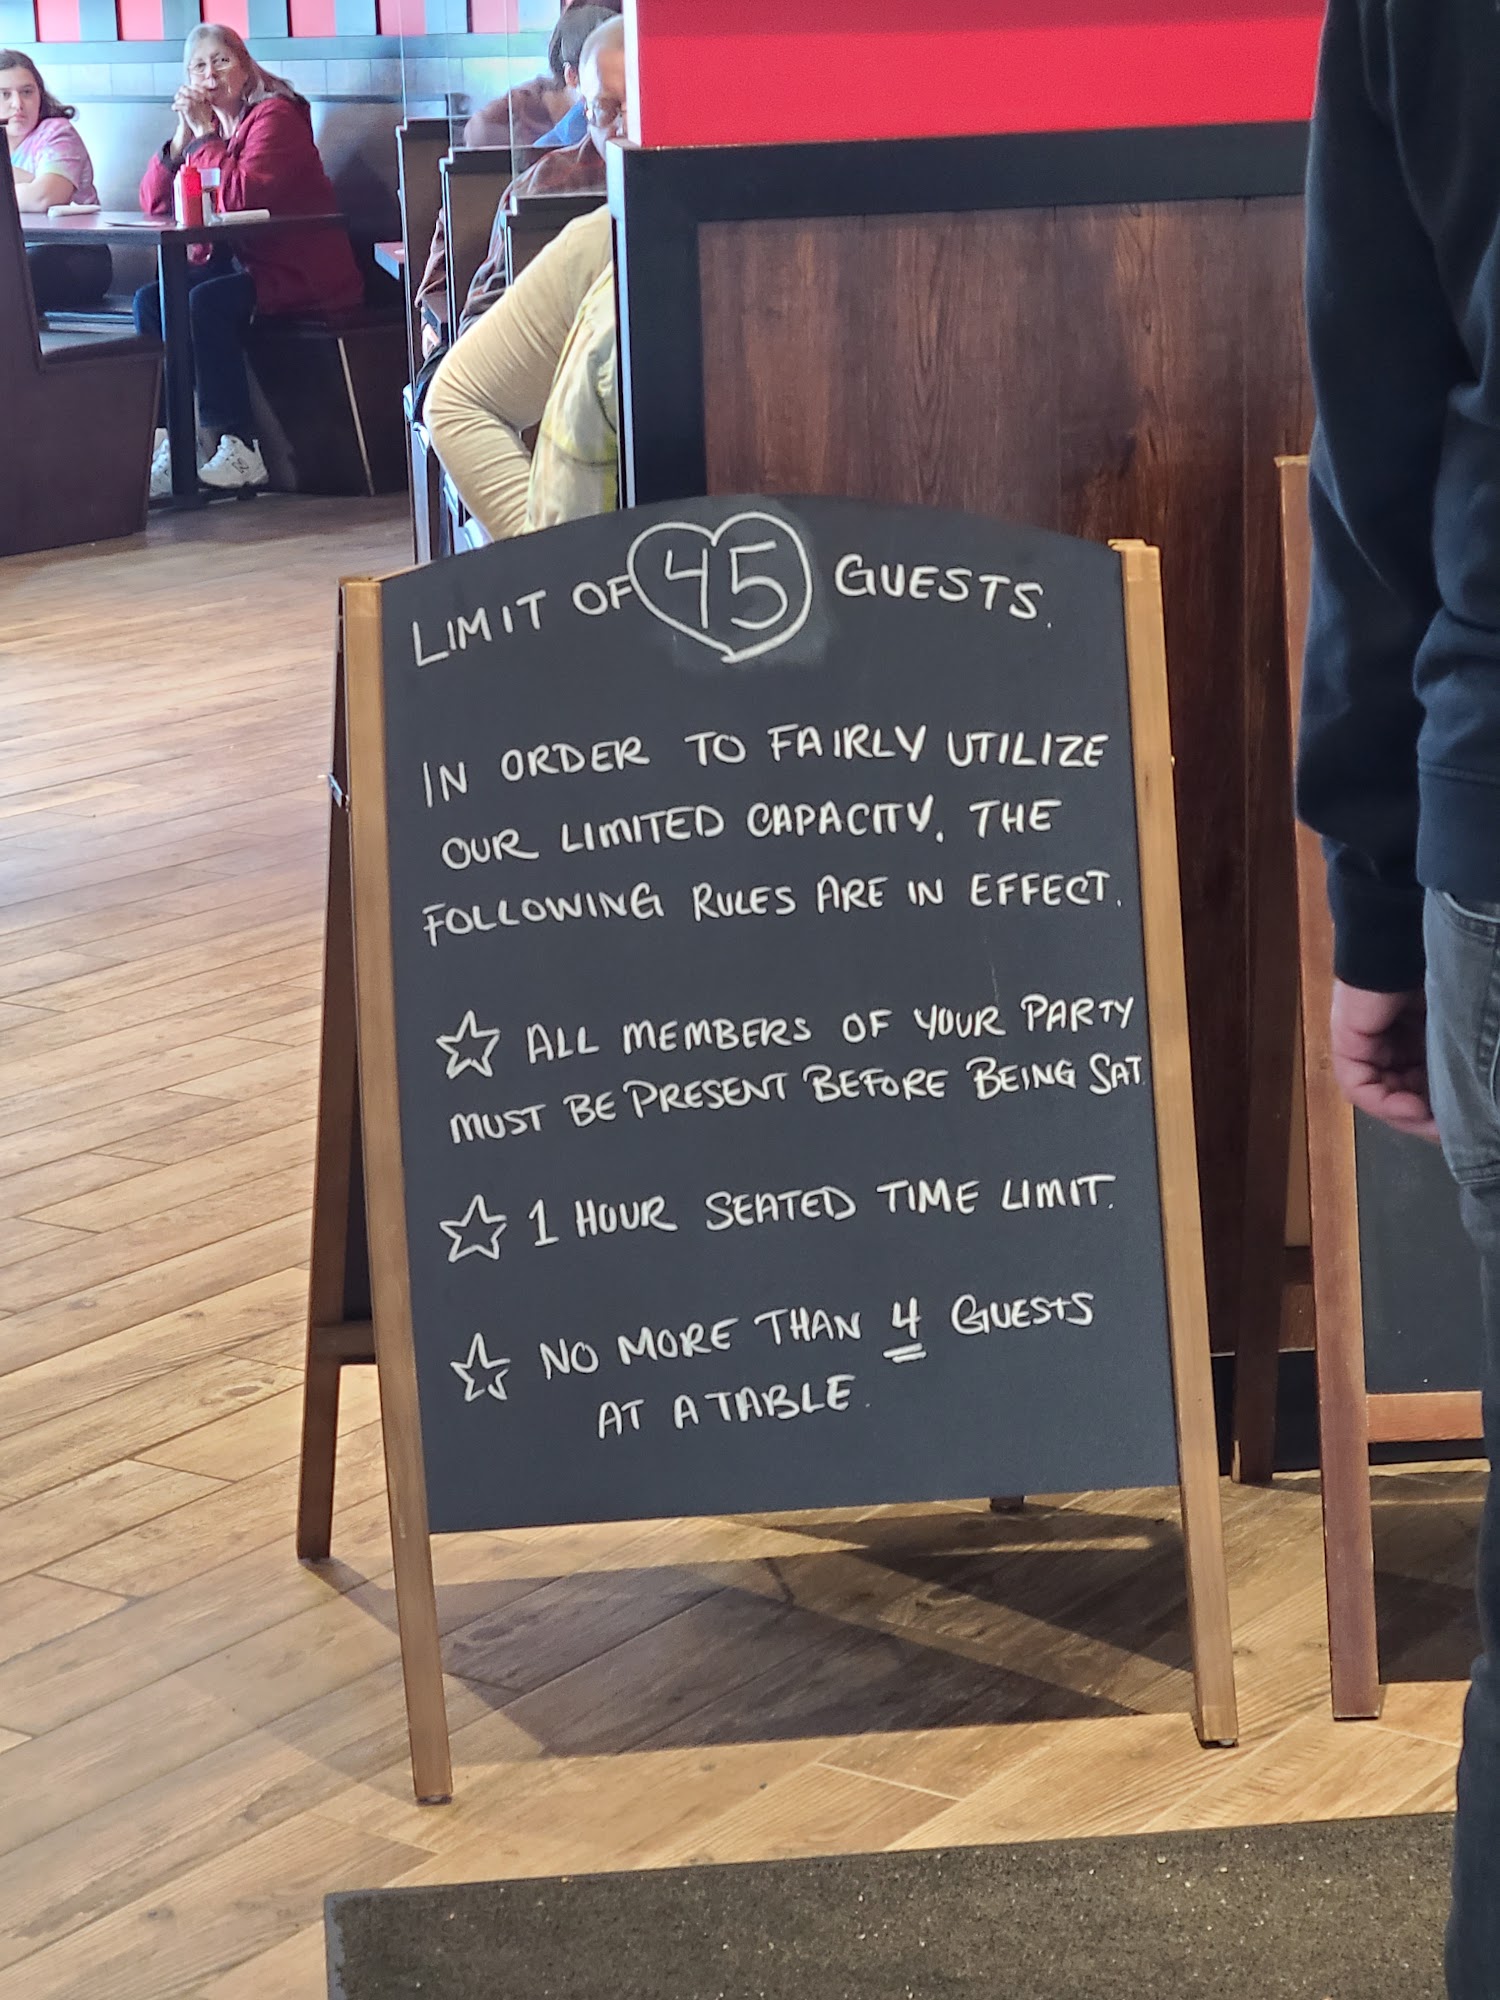 LIMIT OF 45 GUESTS.
IN ORDER TO FAIRLY UTILIZE
OUR LIMITED CAPACITY, THE
FOLLOWING RULES ARE IN EFFECT.
ALL MEMBERS OF YOUR PARTY
MUST BE PRESENT BEFORE BEING SAT.
1 HOUR SEATED TIME LIMIT.
NO MORE THAN 4 GUESTS
AT A TABLE.